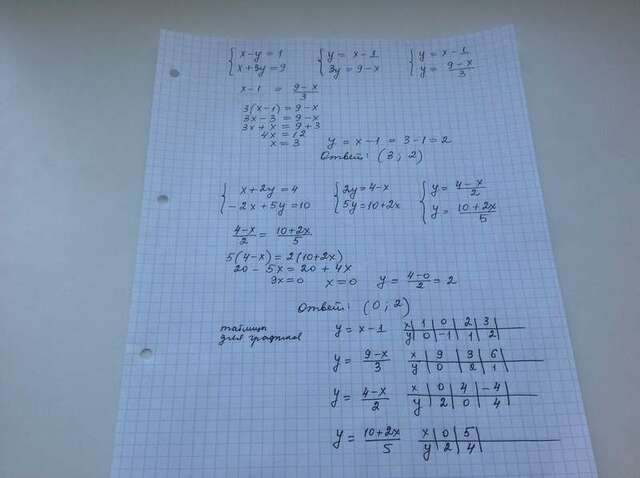 { x-y=1 { y=x-1 { y=x-1
{ x+3y=9 { 3y=9-x { y=(9-x)/3
x-1 = (9-x)/3
3(x-1)=9-x
3x-3=9-x
3x+x=9+3
4x=12
x=3 y=x-1=3-1=2
Ответ: (3; 2)
{ x+2y=4 { 2y=4-x { y=(4-x)/2
{ -2x+5y=10 { 5y=10+2x { y=(10+2x)/5
(4-x)/2 = (10+2x)/5
5(4-x)=2(10+2x)
20-5x=20+4x
9x=0 x=0 y=(4-0)/2=2
Ответ: (0; 2)
таблицы для графиков
y=x-1 x | 1 | 0 | 2 | 3 |
y | 0 | -1 | 1 | 2
y=(9-x)/3 x | 9 | 3 | 6
y | 0 | 2 | 1
y=(4-x)/2 x | 0 | 4 | -4
y | 2 | 0 | 4
y=(10+2x)/5 x | 0 | 5 |
y | 2 | 4 |